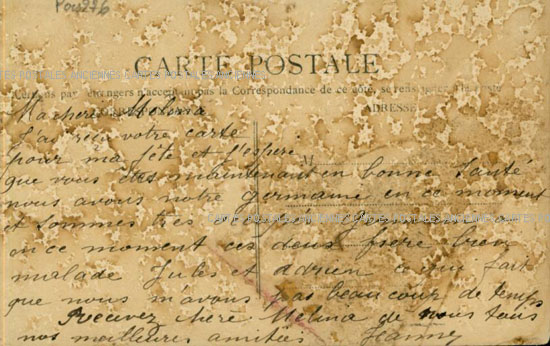 CARTE POSTALE
étrangers n'acceptent pas la Correspondance de ce côté, se renseigner à la
ADRESSE
Ma chère Melina
J'ai reçu votre carte
pour ma fête et j'espère
que vous êtes maintenant en bonne santé
nous avons notre Germaine en ce moment
et sommes très
en ce moment ces deux frère
malade Jules et Adrien ce qui fait
que nous n'avons pas beaucoup de temps
Recevez chère Melina de nous tous
nos meilleures amitiées Jeanne